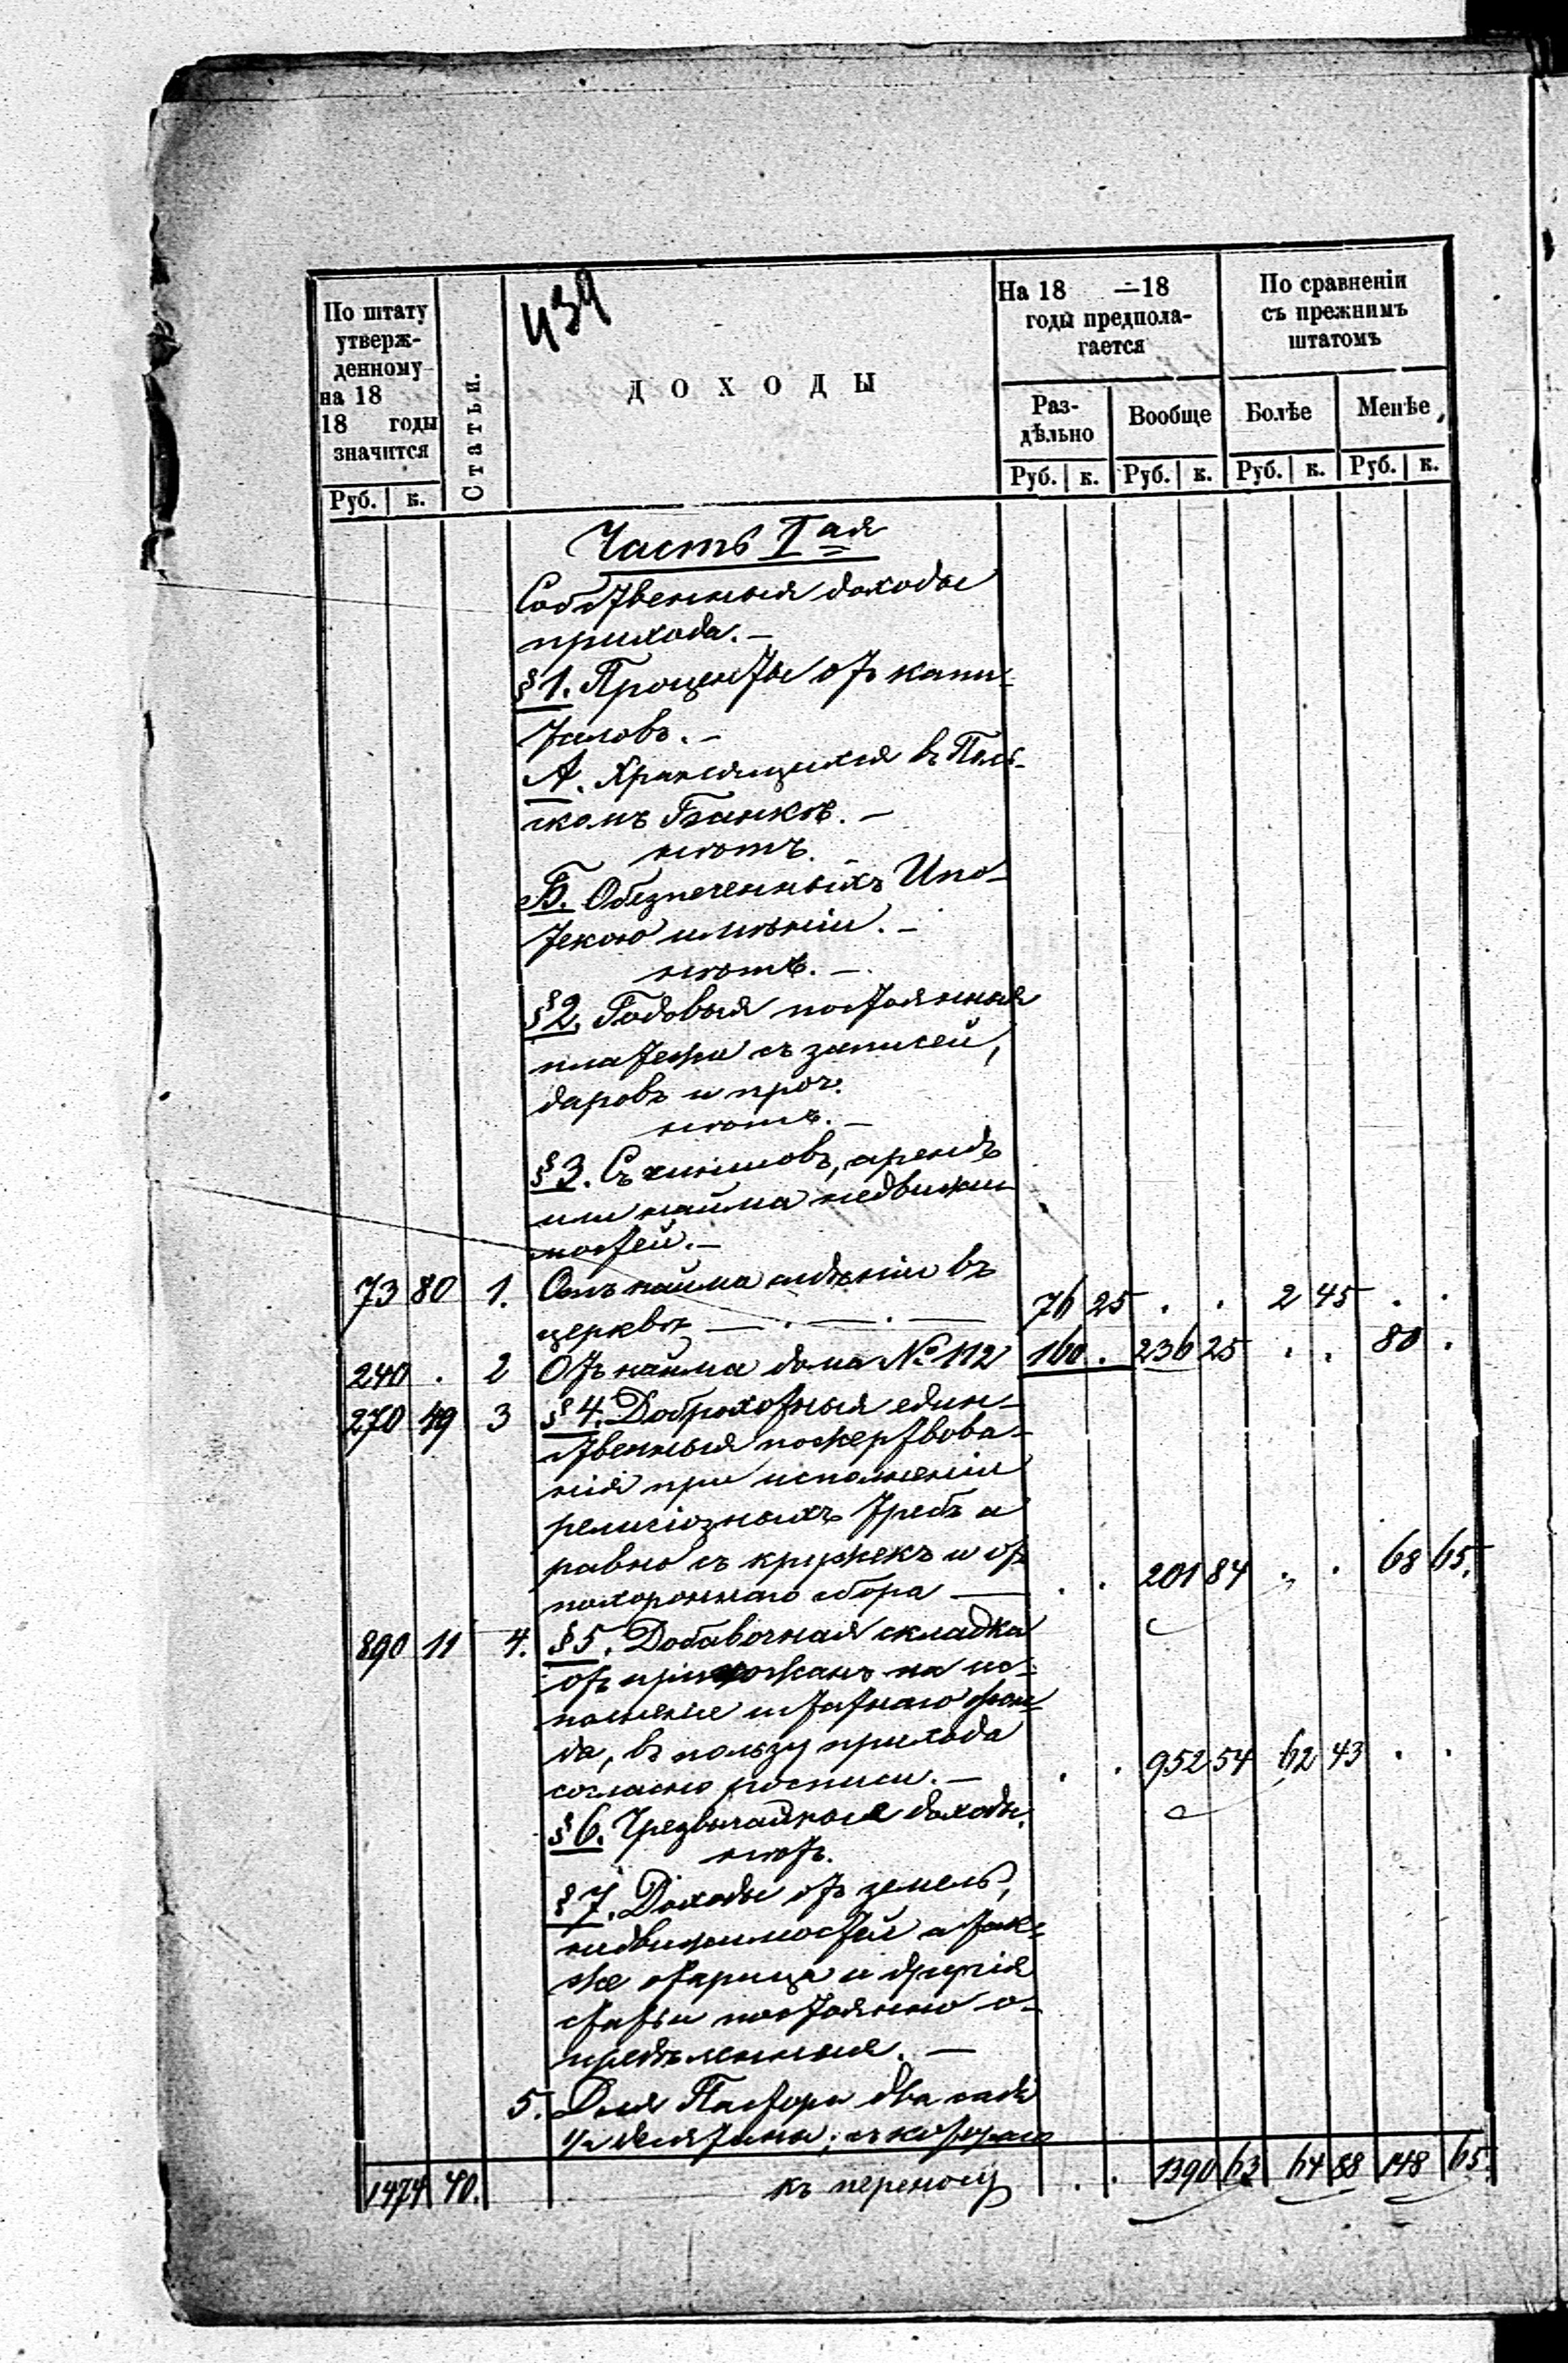 439
По штату утвержденному на 18 18 годы значится
Руб. к.
Статьи.
ДОХОДЫ
На 18 —18 годы предполагается
Раздѣльно
Руб. к.
Вообще
Руб. к.
По сравненіи съ прежнимъ штатомъ
Болѣе
Руб. к.
Менѣе
Руб. к.
Часть I ая
Собственныя доходы
прихода. —
§ 1. Проценты отъ капи-
таловъ. —
А. Хранящихся въ Поль-
скомъ Банкѣ. —
нѣтъ.
Б. Обезпеченныхъ Ипо-
текою имѣніи. —
нѣтъ. —
§ 2. Годовыя постоянныя
платежи съ записей,
даровъ и проч.
нѣтъ. —
§ 3. Съ чиншовъ, арендъ
или найма недвижи-
мостей. —
73 80 1. Отъ найма сидѣніи въ
церквѣ — . — . — 76 25 . . 2 45 . .
240 . 2 Отъ найма дома № 112 160 . 236 25 . . 80 .
270 49 3 § 4. Доброхотныя един-
ственныя пожертвова-
нія при исполненіи
религіозныхъ требъ а
равно съ кружекъ и отъ
похороннаго сбора — . . 201 84 . . 68 65.
890 11 4. § 5. Добавочная складка
отъ прихожанъ на по-
полненіе штатнаго фон-
да, въ пользу прихода
согласно росписи. — . . 952 54 62 43 . .
§ 6. Чрезвычайныя доходы.
нѣтъ.
§ 7. Доходы отъ земель,
недвижимостей а так-
же и другія
статьи постоянно о-
предѣленныя. —
5. Для Пастора два сада
1/2 десятины, съ которыхъ
1474 40. къ переносу . . 1390 63 64 88 148 65.